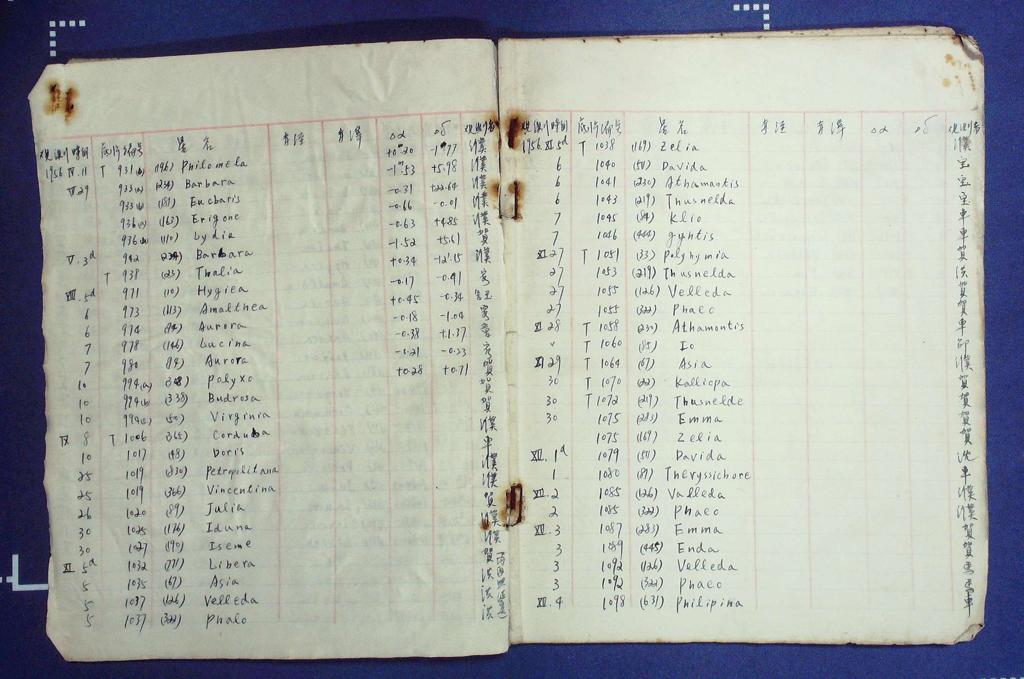 观测时间 底片编号 星名 赤经 赤纬 Δα Δδ 观测者
1956 IV.11 T 931(a) (196) Philomela +0.20 -1.77 濮
VI 29 933(a) (234) Barbara -1.53 +5.98 濮
933(b) (181) Eucharis -0.31 +22.64 濮
936(a) (163) Erigone -0.66 -0.01 濮
936(b) (110) Lydia -0.63 +4.85 濮
V.3d 942 (234) Barbara -1.52 +5.61 賀
T 938 (23) Thalia +0.34 -12.15 濮
VIII.5d 971 (10) Hygiea -0.17 -0.41
6 973 (113) Amalthea +0.45 -0.34
6 974 (94) Aurora -0.18 -1.04
7 978 (146) Lucina -0.38 +1.37
7 980 (94) Aurora -0.21 -0.23
10 994(a) (308) Polyxo +0.28 +0.71 賀
10 994(b) (338) Budrosa 賀
10 994(c) (50) Virginia 賀
IX 8 T 1006 (365) Corduba 濮
10 1017 (48) Doris 車
25 1019 (830) Petropolitana 濮
25 1019 (366) Vincentina 濮
26 1020 (89) Julia 賀
30 1025 (176) Iduna 濮
30 1027 (190) Iseme 濮
XI 5d 1032 (771) Libera 賀
5 1035 (67) Asia 法
5 1037 (126) Velleda 法
5 1037 (322) Phalo 法
观测时间 底片编号 星名 赤经 赤纬 Δα Δδ 观测者
1956 XI.5d T 1038 (169) Zelia 濮
6 1040 (511) Davida
6 1041 (230) Athamantis
6 1043 (219) Thusnelda
7 1045 (84) Klio 車
7 1046 (444) gyptis 車
XI 27 T 1051 (33) Polyhymia 賀
27 1053 (219) Thusnelda
27 1055 (126) Velleda 賀
27 1055 (322) Phaeo 賀
XI 28 T 1058 (230) Athamontis 車
T 1060 (85) Io
XI 29 T 1064 (67) Asia 濮
30 T 1070 (22) Kalliopa 賀
30 T 1072 (219) Thusnelde 賀
30 1075 (283) Emma 賀
1075 (169) Zelia 賀
XII. 1d 1079 (511) Davida 沈
1 1080 (81) Theryssichore 車
XII.2 1085 (126) Valleda 濮
2 1085 (322) Phaeo 濮
XII.3 1087 (283) Emma 賀
3 1089 (445) Enda 賀
3 1092 (126) Velleda
3 1092 (322) Phaeo
XII.4 1098 (631) Philipina 車